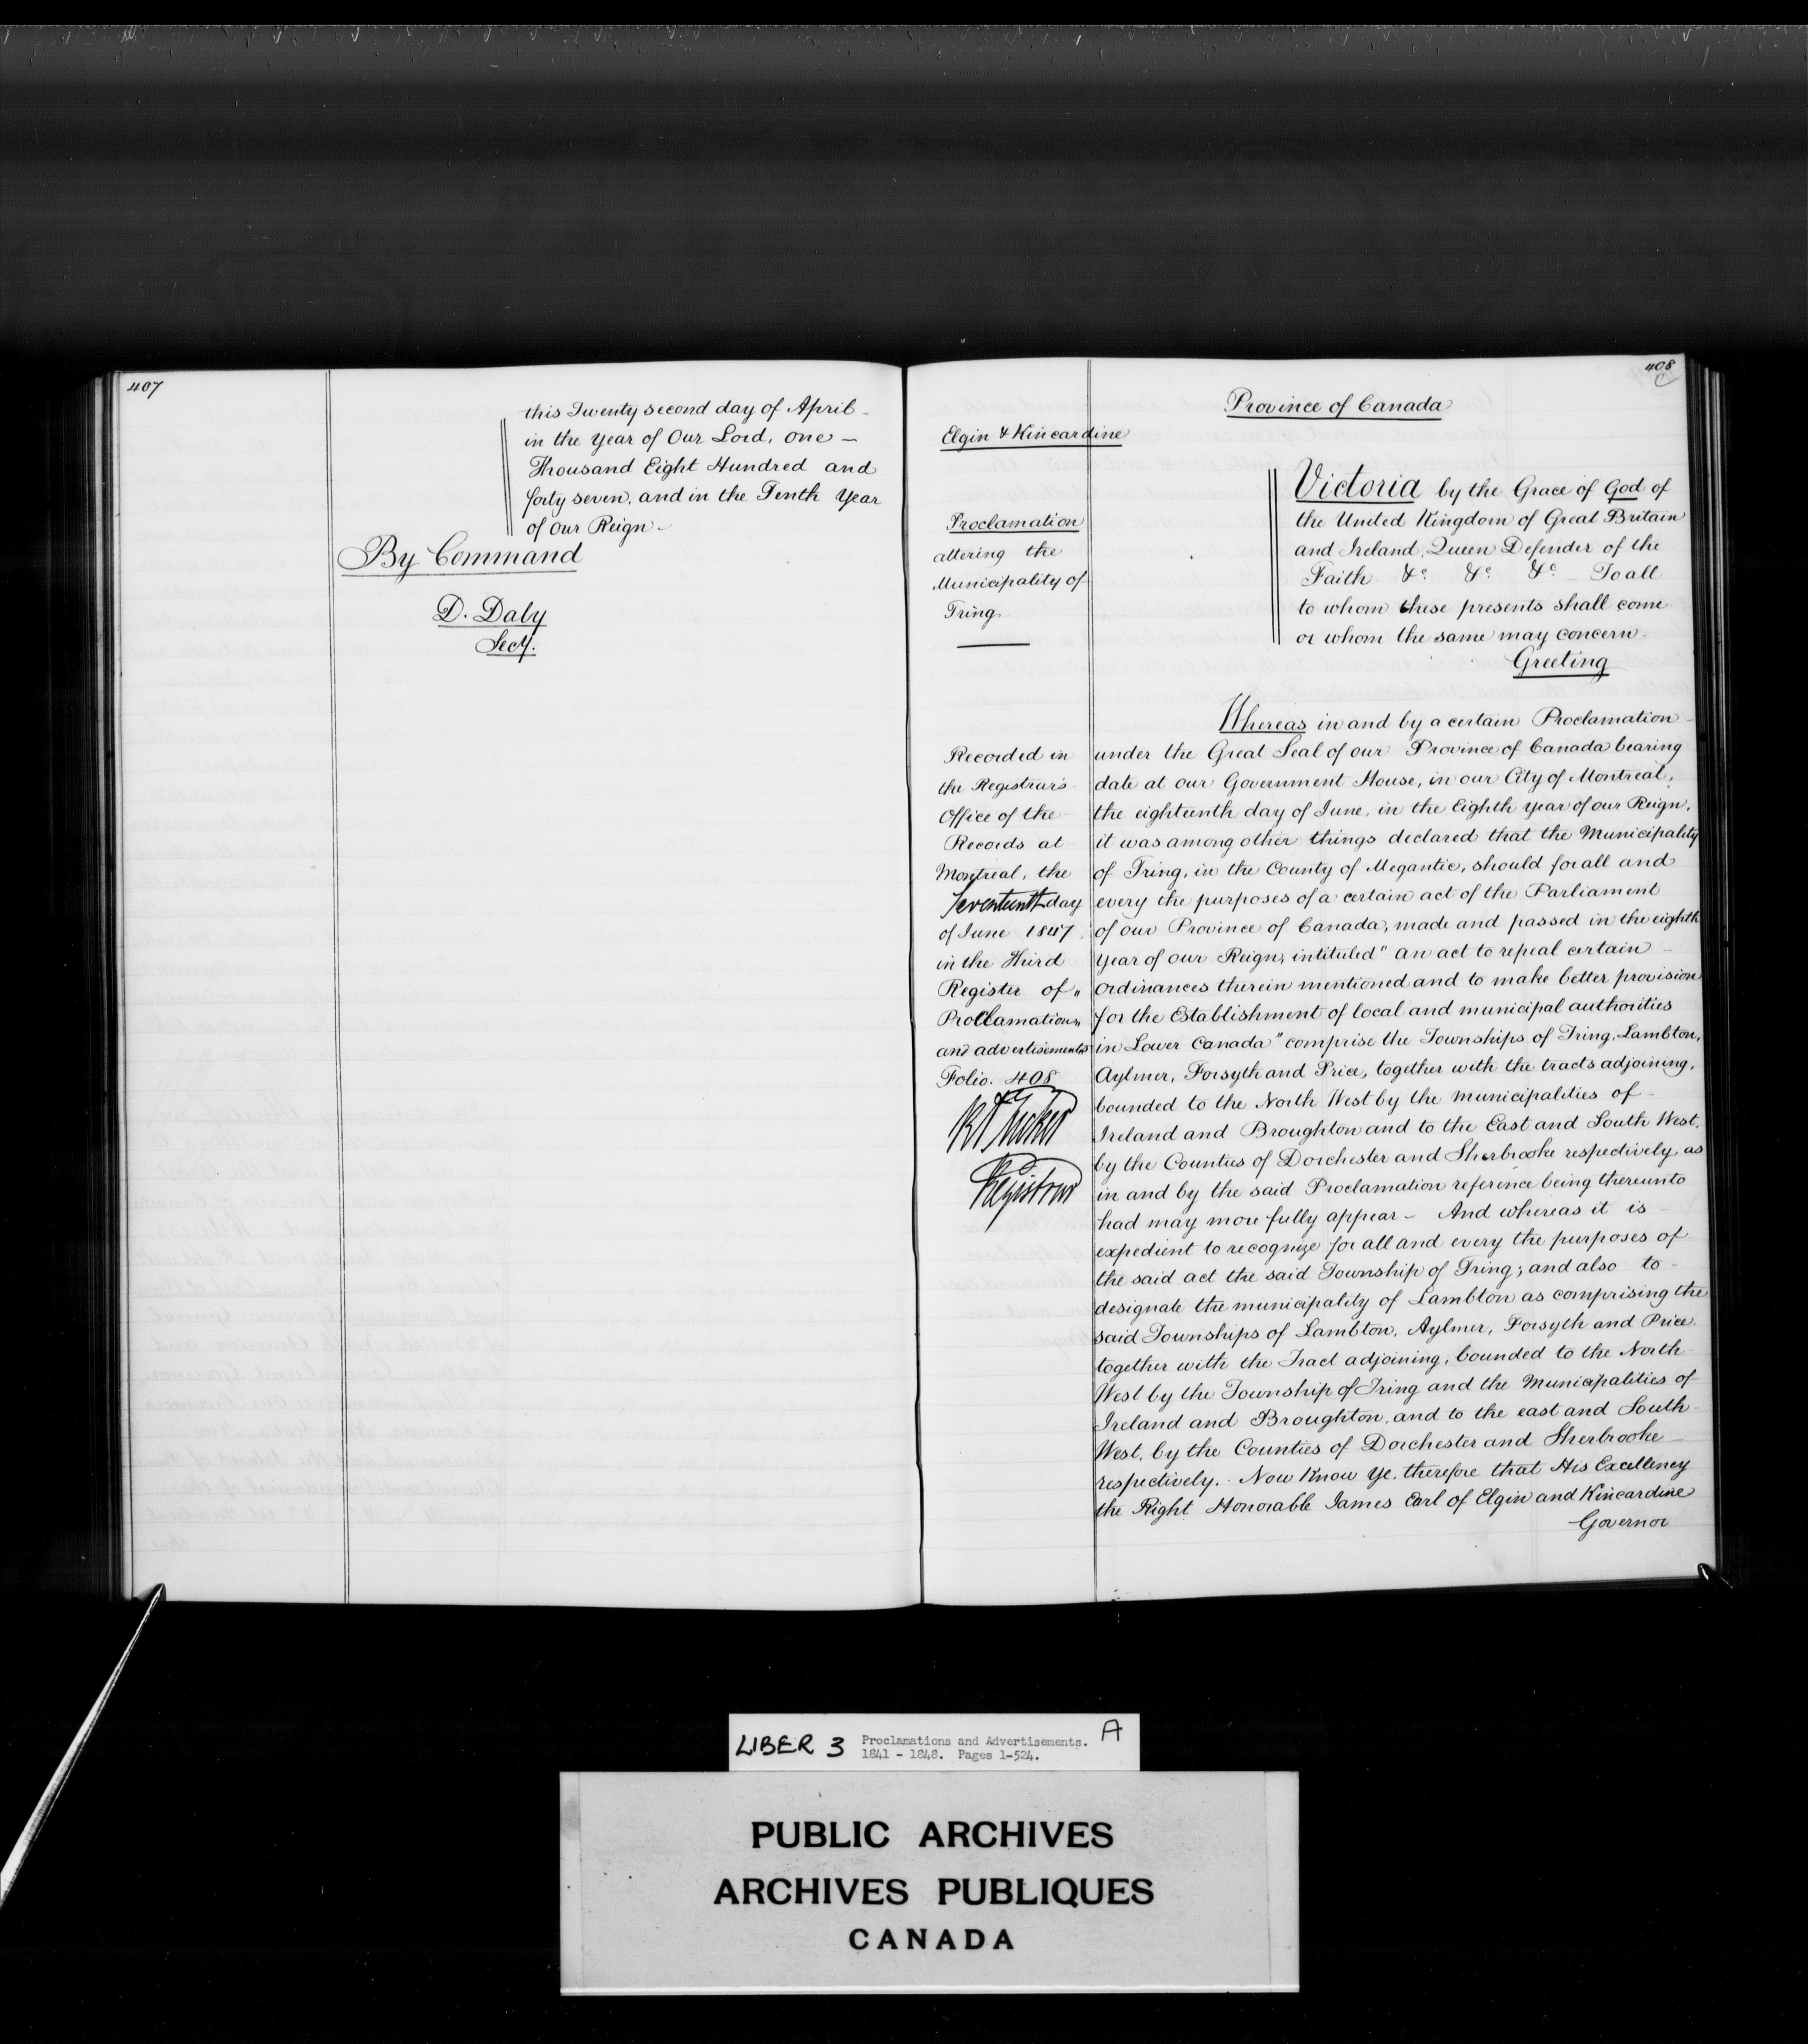 407
this Twenty second day of April
in the year of Our Lord, one
Thousand Eight Hundred and
forty seven, and in the Tenth year
of our Reign
By Command
D. Daly
Secy.
408
Province of Canada
Elgin & Kincardine
Proclamation
altering the
Municipality of
Tring
Victoria by the Grace of God of
the United Kingdom of Great Britain
and Ireland, Queen Defender of the
Faith &c. &c. &c. To all
to whom these presents shall come
or whom the same may concern
Greeting
Recorded in
the Registrar's
Office of the
Records at
Montreal, the
Seventeenth day
of June 1847
in the Third
Register of "
Proclamations
and advertisements
Folio. 408
Registrar
Whereas in and by a certain Proclamation
under the Great Seal of our Province of Canada bearing
date at our Government House, in our City of Montreal,
the eighteenth day of June, in the Eighth year of our Reign,
it was among other things declared that the Municipality
of Tring, in the County of Megantic, should for all and
every the purposes of a certain act of the Parliament
of our Province of Canada, made and passed in the eighth
year of our Reign, intituled "An act to repeal certain
ordinances therein mentioned and to make better provision
for the Establishment of local and municipal authorities
in Lower Canada" comprise the Townships of Tring, Lambton,
Aylmer, Forsyth and Price, together with the tracts adjoining,
bounded to the North West by the municipalities of
Ireland and Broughton and to the East and South West,
by the Counties of Dorchester and Sherbrooke respectively, as
in and by the said Proclamation reference being thereunto
had may more fully appear - And whereas it is
expedient to recognize for all and every the purposes of
the said act the said Township of Tring; and also to
designate the municipality of Lambton as comprising the
said Townships of Lambton, Aylmer, Forsyth and Price
together with the Tract adjoining, bounded to the North
West by the Township of Tring and the Municipalities of
Ireland and Broughton, and to the east and South
West, by the Counties of Dorchester and Sherbrooke
respectively. Now Know Ye, therefore that His Excellency
the Right Honorable James Earl of Elgin and Kincardine
Governor
LIBER 3 Proclamations and Advertisements. A
1841 - 1848. Pages 1-524.
PUBLIC ARCHIVES
ARCHIVES PUBLIQUES
CANADA